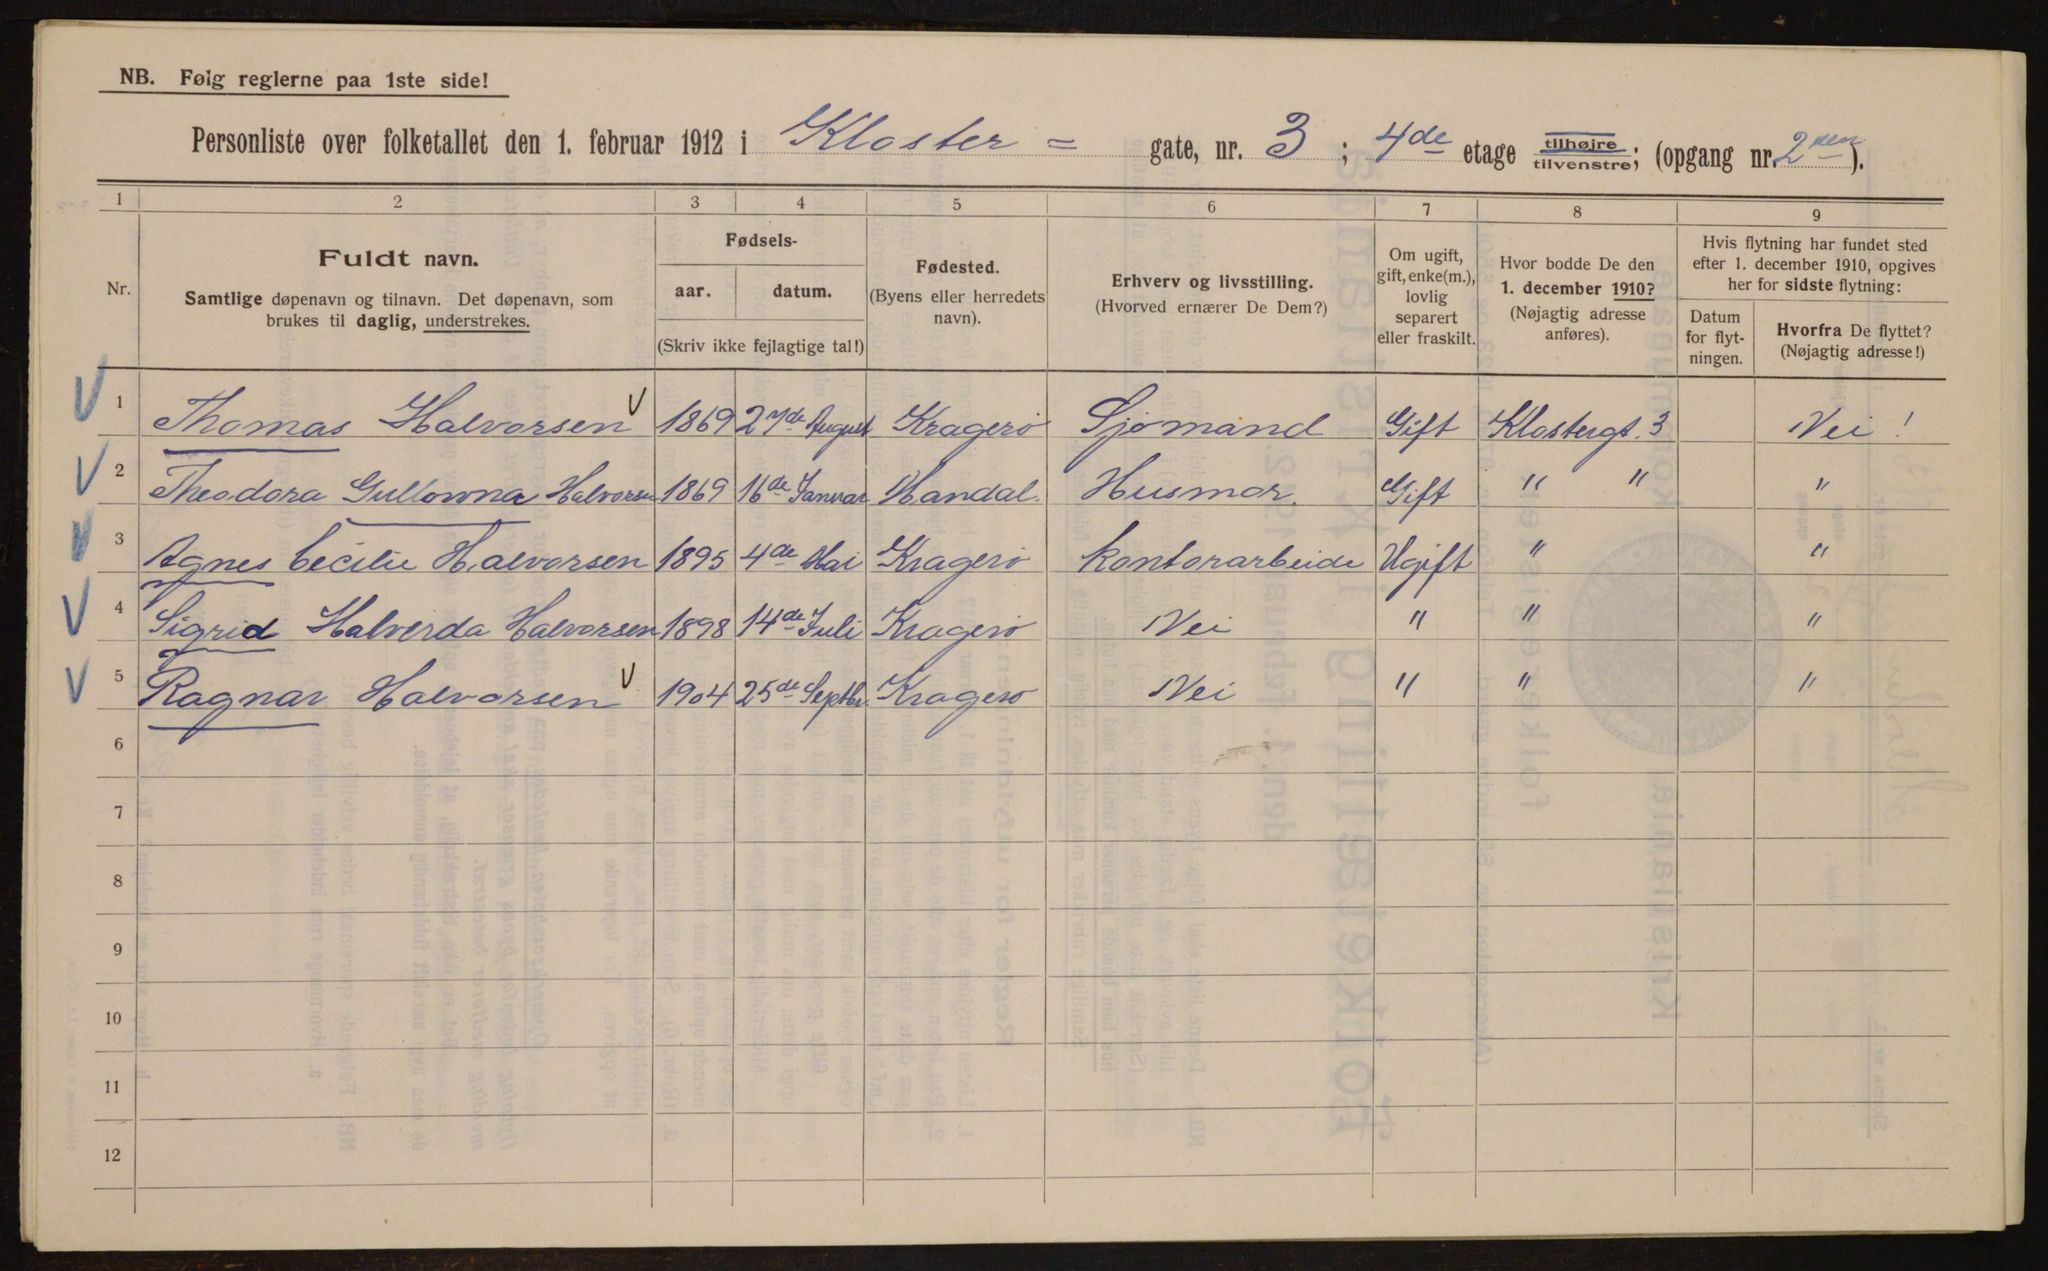 NB. Følg reglerne paa 1ste side!
Personliste over folketallet den 1. februar 1912 i Kloster = gate, nr. 3 ; 4de etage tilhøjre tilvenstre; (opgang nr. 2den).
1 2 3 4 5 6 7 8 9
Nr.
Fuldt navn.
Samtlige døpenavn og tilnavn. Det døpenavn, som
brukes til daglig, understrekes.
Fødsels-
aar. datum.
(Skriv ikke fejlagtige tal!)
Fødested.
(Byens eller herredets
navn).
Erhverv og livsstilling.
(Hvorved ernærer De Dem?)
Om ugift,
gift, enke(m.),
lovlig
separert
eller fraskilt.
Hvor bodde De den
1. december 1910?
(Nøjagtig adresse
anføres).
Hvis flytning har fundet sted
efter 1. december 1910, opgives
her for sidste flytning:
Datum
for flyt-
ningen.
Hvorfra De flyttet?
(Nøjagtig adresse!)
1 Thomas Halvorsen 1869 27de August Kragerø Sjømand Gift Klostergt. 3 Nei !
2 Theodora Gullowna Halvorsen 1869 16de Januar Mandal. Husmor Gift " " "
3 Agnes Cecilie Halvorsen 1895 4de Mai Kragerø Kontorarbeide Ugift " "
4 Sigrid Halverda Halvorsen 1898 14de Juli Kragerø Nei " " "
5 Ragnar Halvorsen 1904 25de Septbr. Kragerø Nei " " "
6
7
8
9
10
11
12